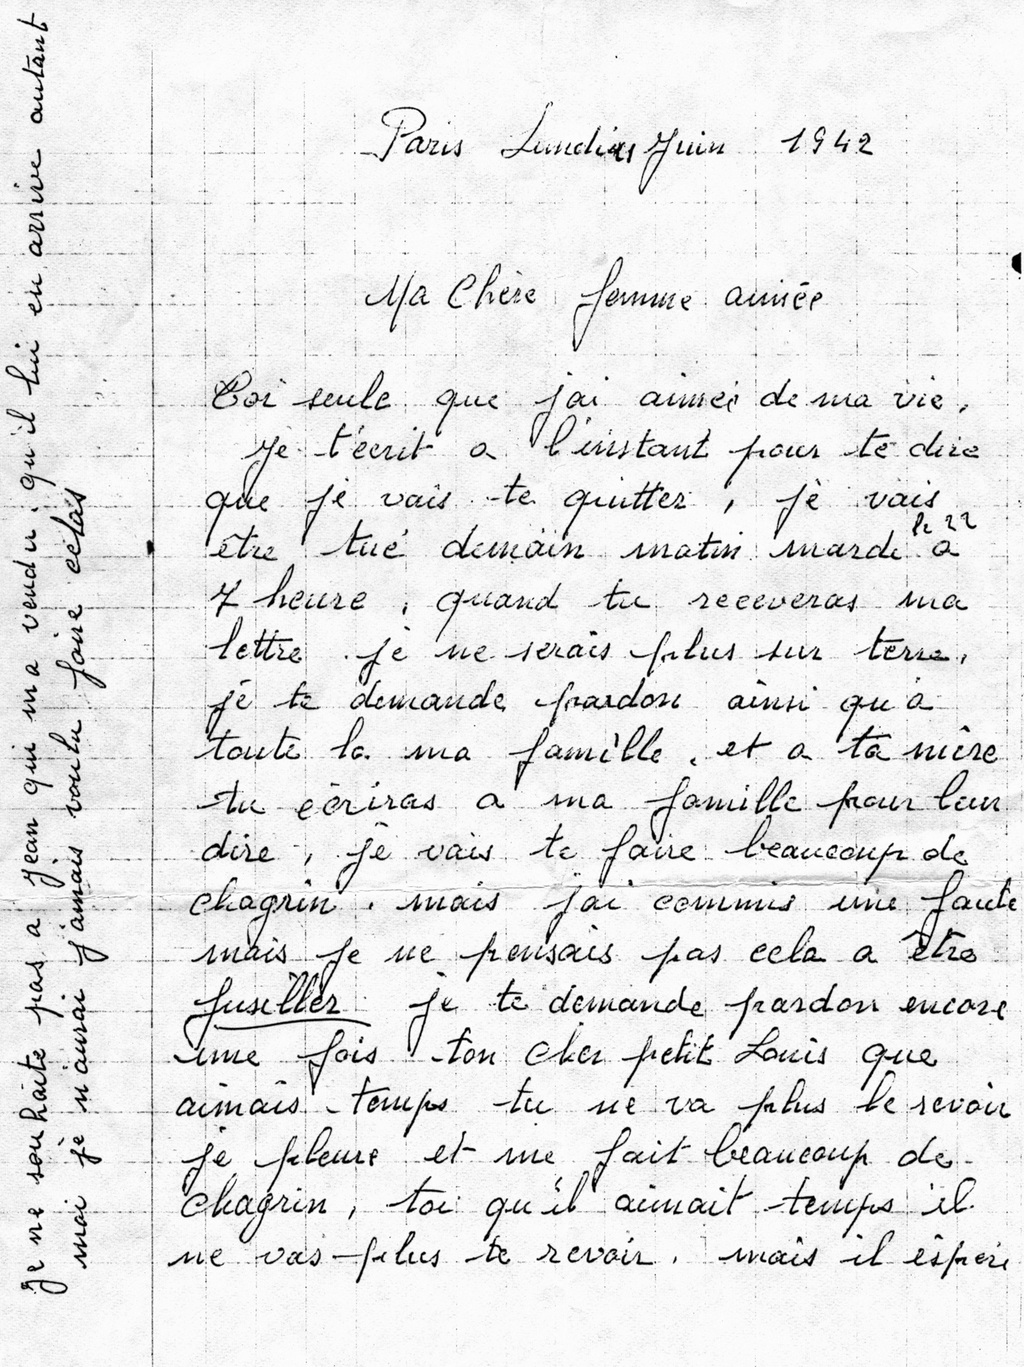 Paris Lundi Juin 1942
Ma Chère femme aimée
Toi seule que j'ai aimée de ma vie,
Je t'écrit a l'instant pour te dire
que je vais te quitter, je vais
le 22
être tué demain matin mardi a
7 heure, quand tu receveras ma
lettre je ne serais plus sur terre,
je te demande pardon ainsi qu'a
toute la ma famille, et a ta mère
tu écriras a ma famille pour leur
dire, je vais te faire beaucoup de
chagrin, mais j'ai commis une faute
mais je ne pensais pas cela a être
fusiller je te demande pardon encore
une fois ton cher petit Louis que
aimais temps tu ne va plus le revoir
je pleure et me fait beaucoup de
chagrin, toi qu'il aimait temps il
ne vas plus te revoir. mais il éspère
Je ne souhaite pas a Jean qui m'a vendu, qu'il lui en arrive autant
moi je n'aurai jamais voulu faire celas